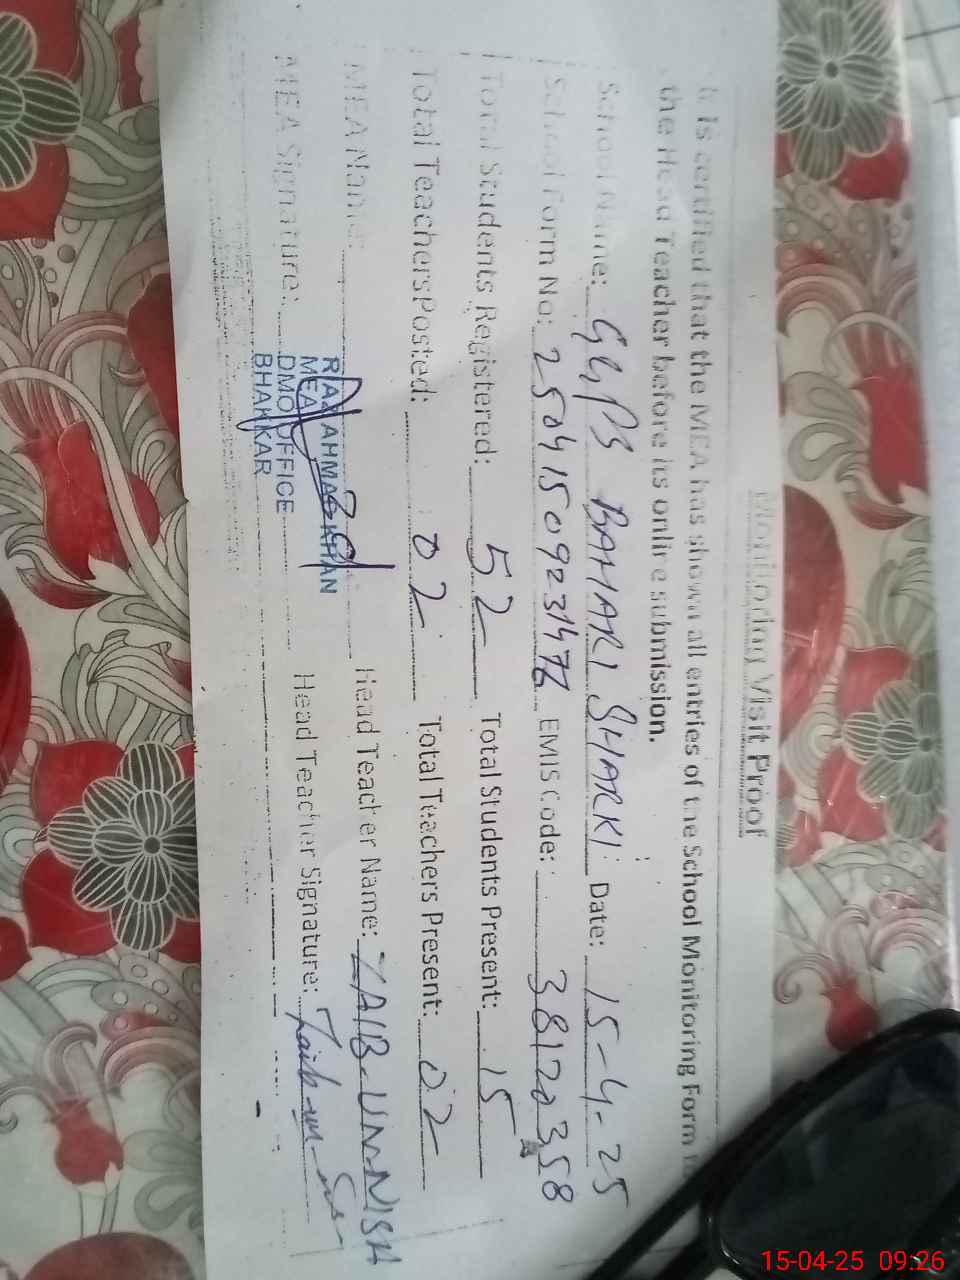 Monitoring Visit Proof
It is certified that the MEA has shown all entries of the School Monitoring Form to
the Head Teacher before its online submission.
School Name: GGPS BAHARI SHARKI Date: 15-4-25
School Form No: EMIS Code: 38120358
Total Students Registered: 52 Total Students Present: 15
Total Teachers Posted: 02 Total Teachers Present: 02
MEA Name: Head Teacher Name: ZAIB-UN-NISA
MEA Signature: Head Teacher Signature: Zaib-un-Nisa
RIAZ AHMAD KHAN
MEA
DMO OFFICE
BHAKKAR
15-04-25 09:26